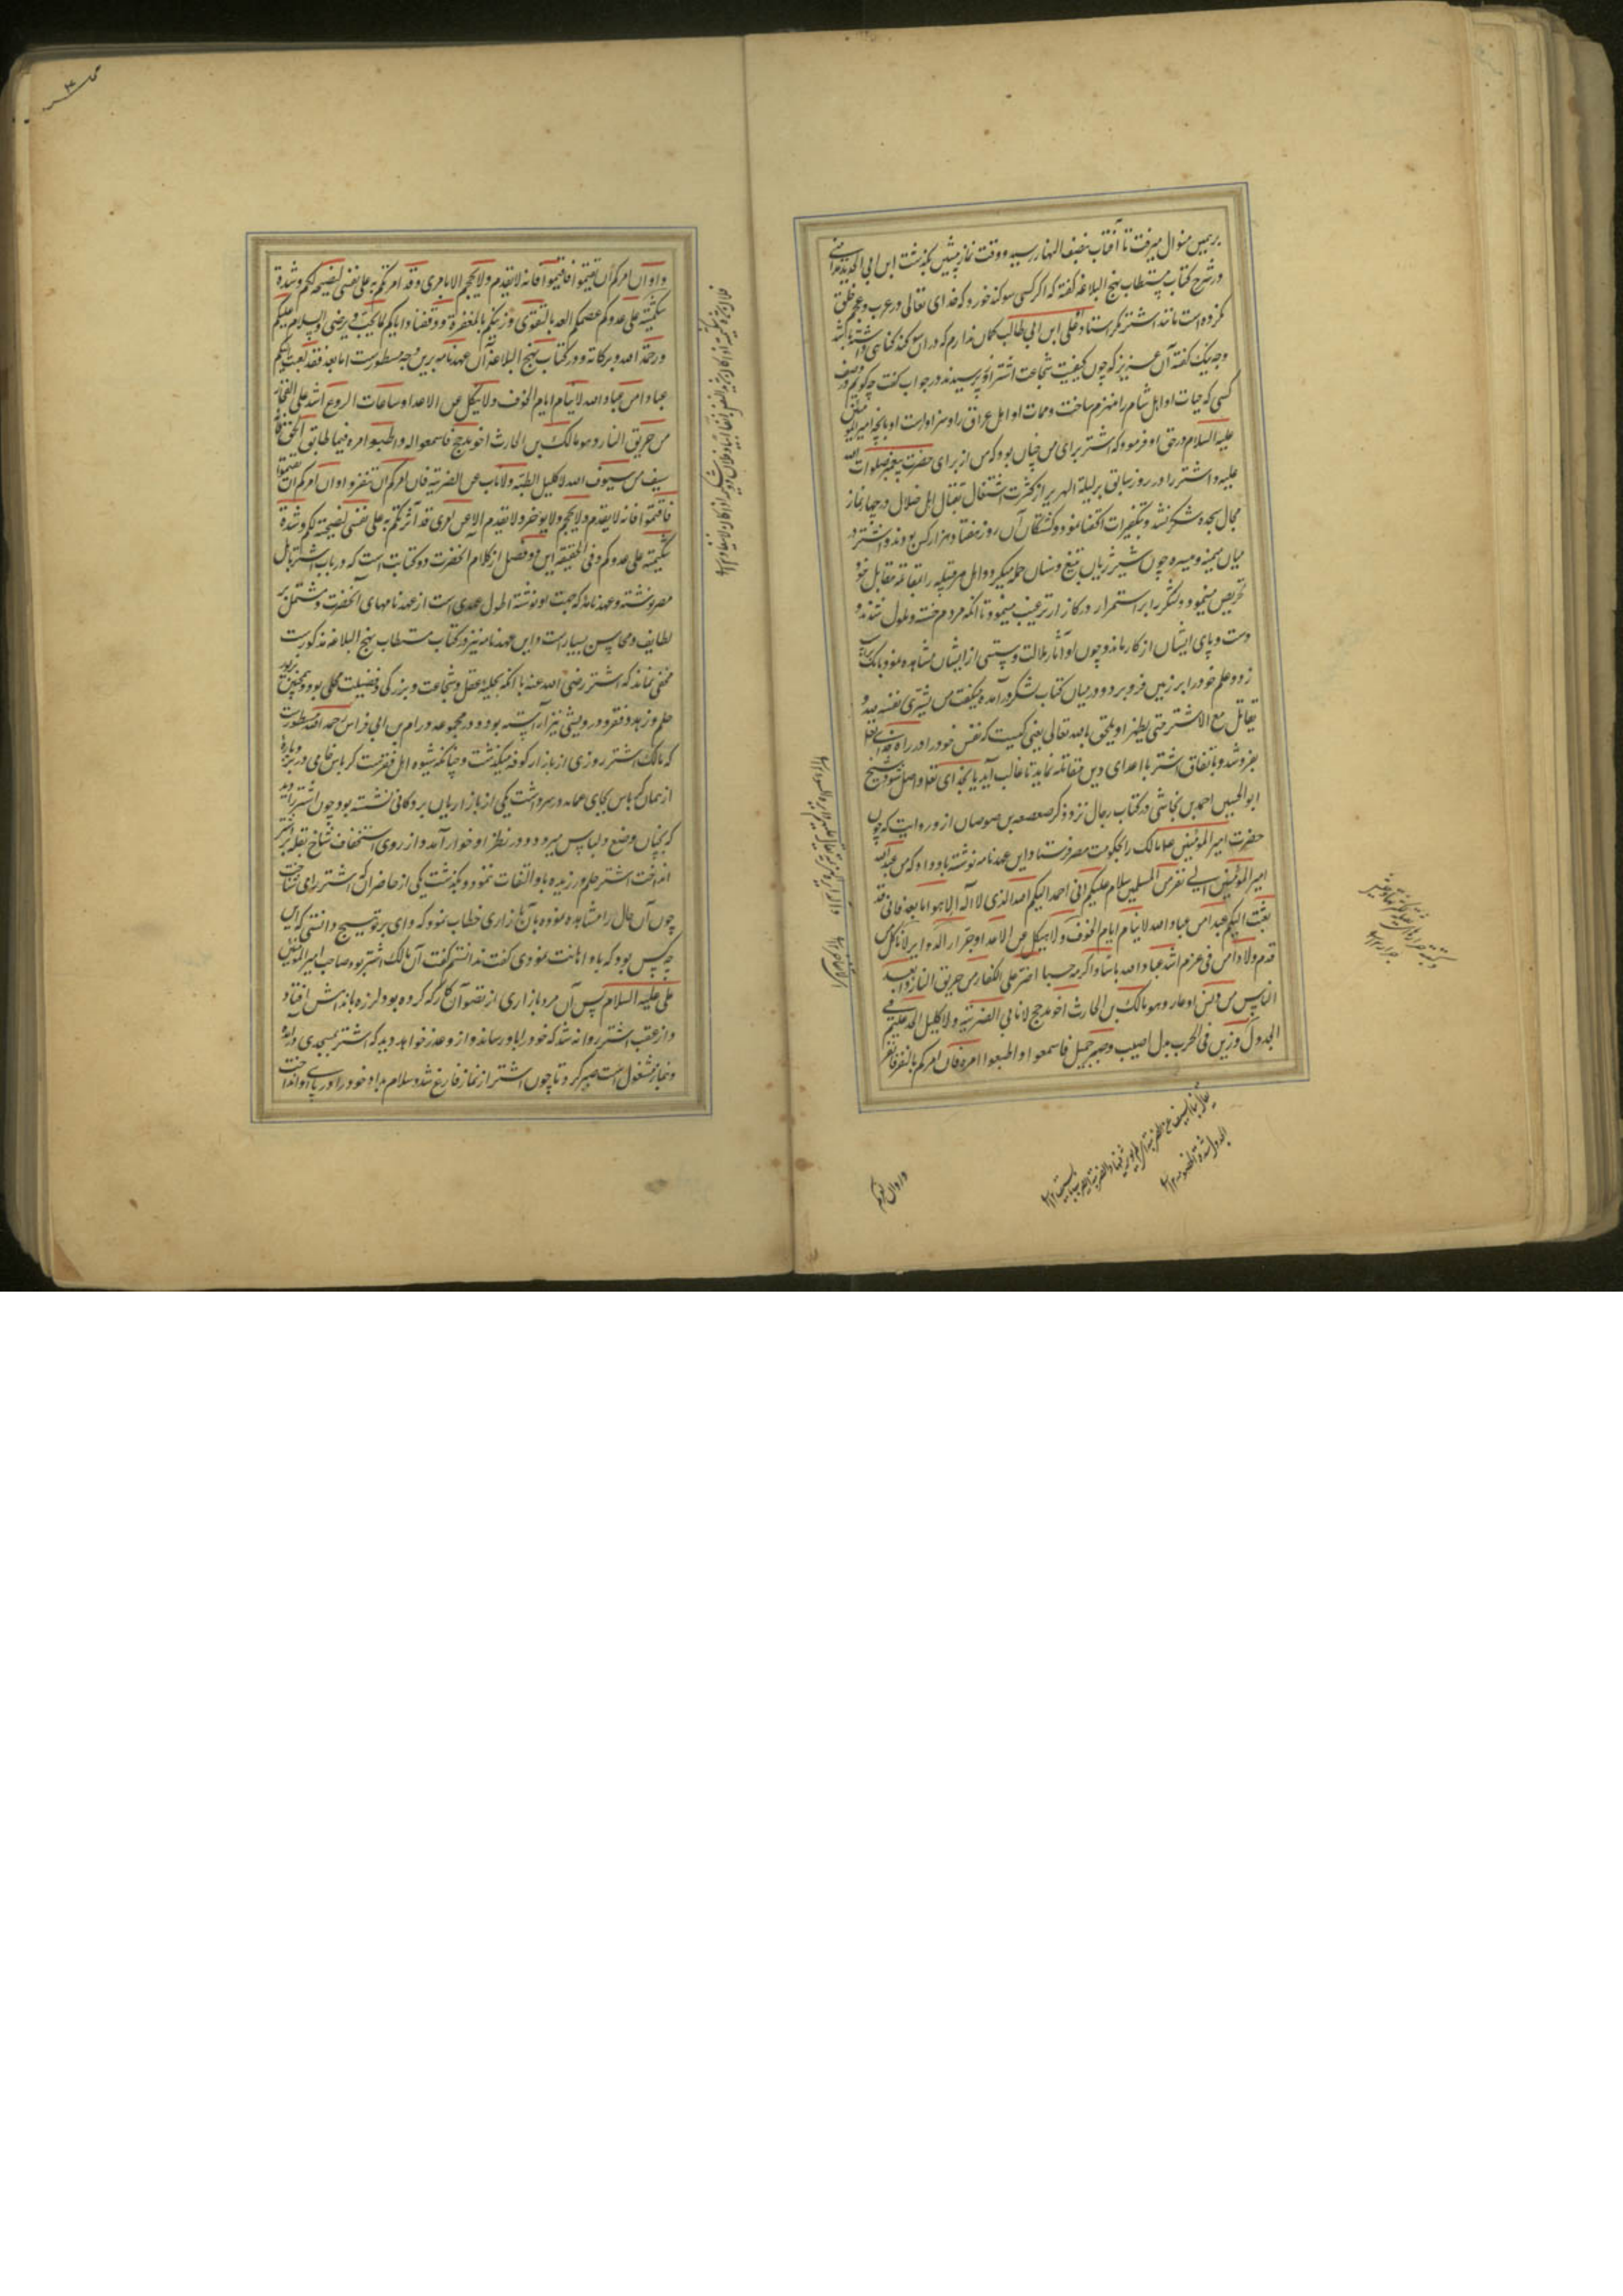 برین منوال میرفت تا آفتاب بنصف النهار رسید و وقت نماز پیشین بگذشت ابن ابی الحدید
در شرح کتاب مستطاب نهج البلاغه گفته که اگر کسی سوکند خورد که خدای تعالی در عرب و عجم خلق
نکرده است مانند اشتر مگر استاد او علی ابن ابی طالب کمان ندارم که در آن سوکند کناهی داشته باشد
و چه نیک گفته آن عزیز که چون کیفیت شجاعت اشتر از و پرسیدند در جواب گفت چه کویم در وصف
کسی که حیات او اهل شام را منهزم ساخت و ممات او اهل عراق را و سزاوار است او بانچه امیر المؤمنین
علیه السلام در حق او فرموده که اشتر برای من چنان بود که من از برای حضرت پیغمبر صلوات الله
علیه و اشتر را در روز سابق بر لیلة الهریر از کثرت اشتغال بقتال اهل ضلال در چهار نماز
مجال سجده شکر نشد و بتکبیرات اکتفا نمود و کشتگان آن روز هفتاد هزار کس بودند و اشتر در
میان میمنه و میسره چون شیر ژیان بتیغ و سنان حمله میکرد و اهل هر قبیله را بمقاتله مقابل خود
تحریص مینمود و لشکر را بر استمرار در کارزار ترغیب مینمود تا انکه مردم خسته و ملول شدند و
دست و پای ایشان از کار ماند و چون او آثار ملالت و سستی از ایشان مشاهده نمود بانک بر اسب
زد و علم خود را بر زمین فرو برد و در میان کتاب لشکر در آمده میگفت من یشتری نفسه لله و
یقاتل مع الاشتر حتی یظهر او یلحق بالله تعالی یعنی کیست که نفس خود را در راه خدای تعالی
بفروشد و باتفاق اشتر با اعدای دین مقاتله نماید تا غالب آید یا بخدای تعالی واصل شود و شیخ
ابو الحسین احمد بن نجاشی در کتاب رجال نزد ذکر صعصعه بن صوحان از و روایت که چون
حضرت امیر المؤمنین ع مالک را بحکومت مصر فرستاد این عهدنامه نوشته باو داد که من عبد الله
امیر المؤمنین الی نفر من المسلمین سلام علیکم انی احمد الیکم الله الذی لا اله الا هو اما بعد فانی قد
بعثت الیکم عبدا من عباد الله لا ینام ایام الخوف ولا ینکل عن الاعداء حذار الدوایر لا ناکل من
قدم ولا واهن فی عزم اشد عباد الله باسا و اکرمه حسبا اضر علی الکفار من حریق النار و ابعد
الناس من دنس او عار و هو مالک بن الحارث اخو مذحج لا نابی الضریبة ولا کلیل الحد علیم فی
الجد وزین فی الحرب نزل اصیل و صبر جمیل فاسمعوا و اطیعوا امره فان امرکم بالنفر فانفروا
و ان امرکم
و ان امرکم ان تقیموا فاقیموا فانه لا یقدم ولا یحجم الا بامری و قد امرتکم به علی نفسی لنصیحته لکم و شدة
شکیمته علی عدوکم عصمکم الله بالتقوی و زینکم بالمغفرة و وفقنا و ایاکم لما یحب و یرضی و السلام علیکم
و رحمة الله و برکاته و در کتاب نهج البلاغه آن عهدنامه برین وجه مسطورست اما بعد فقد بعثت الیکم
عبدا من عباد الله لا ینام ایام الخوف ولا ینکل عن الاعداء ساعات الروع اشد علی الفجار
من حریق النار و هو مالک بن الحارث اخو مذحج فاسمعوا له و اطیعوا امره فیما طابق الحق فانه
سیف من سیوف الله لا کلیل الظبة ولا ناب عن الضریبة فان امرکم ان تنفروا فانفروا و ان امرکم ان تقیموا
فاقیموا فانه لا یقدم ولا یحجم ولا یوخر ولا یقدم الا عن امری قد آثرتکم به علی نفسی لنصیحته لکم و شدة
شکیمته علی عدوکم و فی الحقیقه این دو فصل از کلام آنحضرت دو کتابت است که در باب اشتر باهل
مصر نوشته و عهدنامه که جهت او نوشته اطول عهدی است از عهدنامهای آنحضرت و مشتمل بر
لطایف و محاسن بسیار است و این عهدنامه نیز در کتاب مستطاب نهج البلاغه مذکورست
مخفی نماند که اشتر رضی الله عنه با انکه بحلیه عقل و شجاعت و بزرگی و فضیلت محلی بود همچنین بزیور
حلم و زهد و فقر و درویشی نیز آراسته بود و در مجموعه ورام بن ابی فراس رحمه الله مسطورست
که مالک اشتر روزی از بازار کوفه میگذشت و چنانکه شیوه اهل فقرست کرباس خامی در بر و پاره
از همان کرباس بجای عمامه در سر داشت یکی از بازاریان بر دکانی نشسته بود چون اشتر را دید
که بچنان وضع و لباس میرود در نظر او خوار آمد و از روی استخفاف شاخ بقله بر اشتر
انداخت اشتر حلم ورزیده باو التفات ننمود و بگذشت یکی از حاضران که اشتر را می شناخت
چون آن حال را مشاهده نمود بآن بازاری خطاب نمود که وای بر تو هیچ دانستی که این
چه کس بود که باو اهانت نمودی گفت ندانستم گفت آن مالک اشتر بود صاحب امیر المؤمنین
علی علیه السلام پس آن مرد بازاری از تصور آن کار که کرده بود لرزه باندامش افتاد
و از عقب اشتر روانه شد که خود را باو رساند و از و عذر خواهد دید که اشتر بمسجدی در آمده
و بنماز مشغول است صبر کرد تا چون اشتر از نماز فارغ شد و سلام داد خود را در پای او انداخت